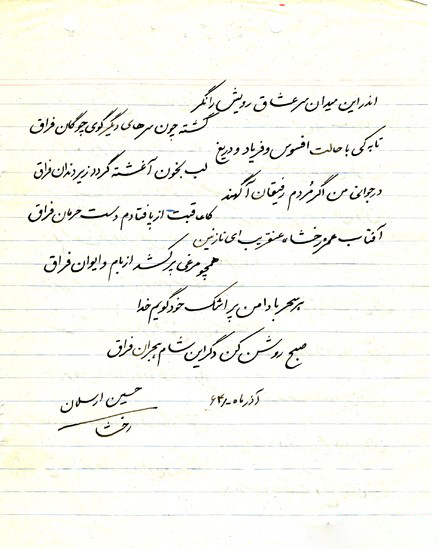 اندر این میدان سر عشاق رویش را نگر
گشته چون سرهای دیگر گوی چوگان فراق
تا به کی با حالت افسوس و فریاد و دریغ
لب بخون آغشته گردد زیر دندان فراق
در جوانی من اگر مُردم رفیقان آگهند
کاعاقبت از پا فتادم دست حرمان فراق
آفتاب عمر رخشا عنقریب ای نازنین
همچو مرغی پر کشد از بام و ایوان فراق
هر سحر با دامن پر اشک خود گویم خدا
صبح روشن کن دگر این شام هجران فراق
آذر ماه ۶۴
حسین ارسلان
رخشا